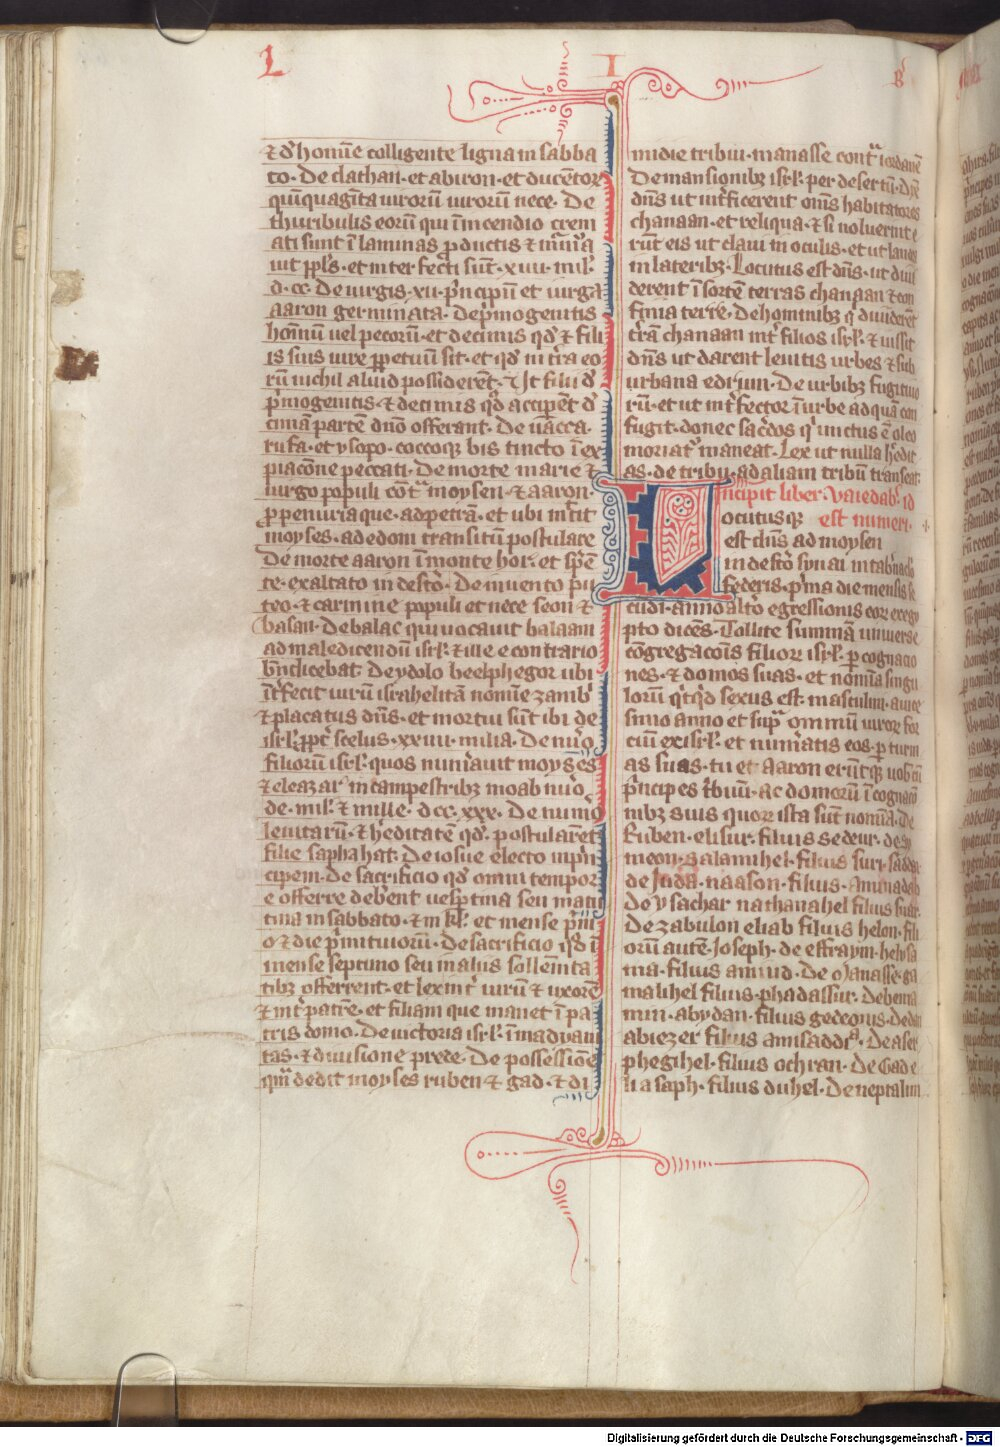 L I B
⁊ d̄ homīe colligente ligna in sabba
to. De dathan. et abiron. et ducentoꝝ
quīquagīta uirorū uirorū nece. De
thuribulis eorū qui īincendio crem
ati sunt ī laminas productis ⁊ mͬmͣa
uit ppl̄s. et inter fecti sūt. xiiii. mil.
d. cc. De uirgis. xii. pͥncipū et uirga
aaron germinata. De pͥmogenitis
hoīnū uel pecorū. et decimis qd̓ ⁊ fili
is suis iure perpetuū sit. et qd̓ in tͬra eo
rū nichil aliud possiderēt. Ut filii d̄
pͥmogenitis ⁊ decimis qd̓ accipēt d̄
cimā partē dn̄o offerant. De uacca
rufa. et ysopo. coccoqꝫ bis tincto ī ex
piacōne peccati. De morte marie ⁊
iurgo populi cōtͣ moysen. ⁊ aaron.
ꝓ penuria que. ad petrā. et ubi mͥtit
moyses. ad edom transitū postulare
De morte aaron ī monte hor. et sp̄ē
te. exaltato in des̄to. De inuento pu
teo. ⁊ carmine populi et nece seon ⁊
basan. De balac qui uocauit balaam
ad maledicendū isrl̄. ⁊ ille e contrario
bn̄dicebat. De ydolo beelphegor ubi
īt̓fecit uirū israhelitā nomīe zambͥ
⁊ placatus dn̄s. et mortui sūt ibi de
isrl̄. ꝓpt̓ scelus. xxiiii. milia. De nūo
filiorū isrl̄. quos num̓auit moyses
⁊ eleazar in campestribꝫ moab nūo.
de. mil. ⁊ mille. dcc. xxx. De numo
leuitarū. ⁊ h̓editatē qd̓. postularēt
filie saphahat. De iosue electo inpͥn
cipem. De sacrificio qd̓ omni tempor
e offerre deb̓ent uesp̱tina seu matu
tina in sabbato. ⁊ in kl̄. et mense pͥm
o ⁊ die pͥmitiuorū. De sacrificio qd̓ ī
mense septimo seu maliis sollēnita
tibꝫ offerrent. et lex int̓ uirū ⁊ uxorē
⁊ int̓ patrē. et filiam que manet ī pa
tris domo. De uictoria isrl̄. ī madyani
tas. ⁊ diuisione prede. De possessiōe
quā dedit moyses ruben ⁊ gad. ⁊ di
midie tribui. manasse contͣ iordanē
De mansionibꝫ isrl̄. per desertū.
dn̄s ut int̓ficerent om̄s habitatores
chanaan. et reliqua. ⁊ si noluerint e
rūt eis ut claui in oculis. et ut lance
in lateribꝫ. Locutus est dn̄s. ut diui
derent ī sortē terras chanaan ⁊ con
finia terre. De hominibꝫ qͥ diuiderēt
tͬrā chanaan int̓ filios isrl̄. ⁊ iussit
dn̄s ut darent leuitis urbes ⁊ sub
urbana edrium. De urbibꝫ fugitiuo
rū. et ut int̓fector ī urbe ad quā con
fugit. donec sac̓dos qͥ unctus ē oleo
moriat̓ maneat. Lex ut nulla h̓edit
as. de tribu. ad aliam tribū transeat
Incipit liber. Vaiedab̓. id
est numeri.
Locutusqꝫ
est dn̄s ad moysen
in des̄to synai in tab̓nac̄lo
federis. pͥma die mensis se
cūdi. anno alt̓o egressionis eoꝝ ex egy
pto dicēs. Tollite summā uniuerse
cōgregacōis filioꝝ isrl̄. ꝑ cognacio
nes. ⁊ domos suas. et nomīa singu
lorū qͥcqͥd sexus est. masculini. a uice
simo anno et supͣ omniū uiroꝝ for
ciū ex isrl̄. et num̓atis eos. ꝑ turm
as suas. tu et aaron erūtqꝫ uob̄ cū
pͥncipes tͥbuū. ac domorū ī cognacō
nibꝫ suis quoꝝ ista sūt nomīa. De
Ruben. elisur. filius sedeur. de sy
meon. salamihel. filius suri. saddai
de Juda. naason. filius. Aminadab
De ysachar nathanahel filius suar.
De zabulon eliab filius helon. fili
orū autē. Joseph. de effraym. helysa
ma. filius amiud. De Manasse. ga
malihel filius. phadassur. De benia
min. abydan. filius gedeonis. de dan
abiezer filius amisaddi. De aser
phegihel. filius ochran. De Gad e
liasaph. filius duhel. De neptalim
Digitalisierung gefördert durch die Deutsche Forschungsgemeinschaft - DFG